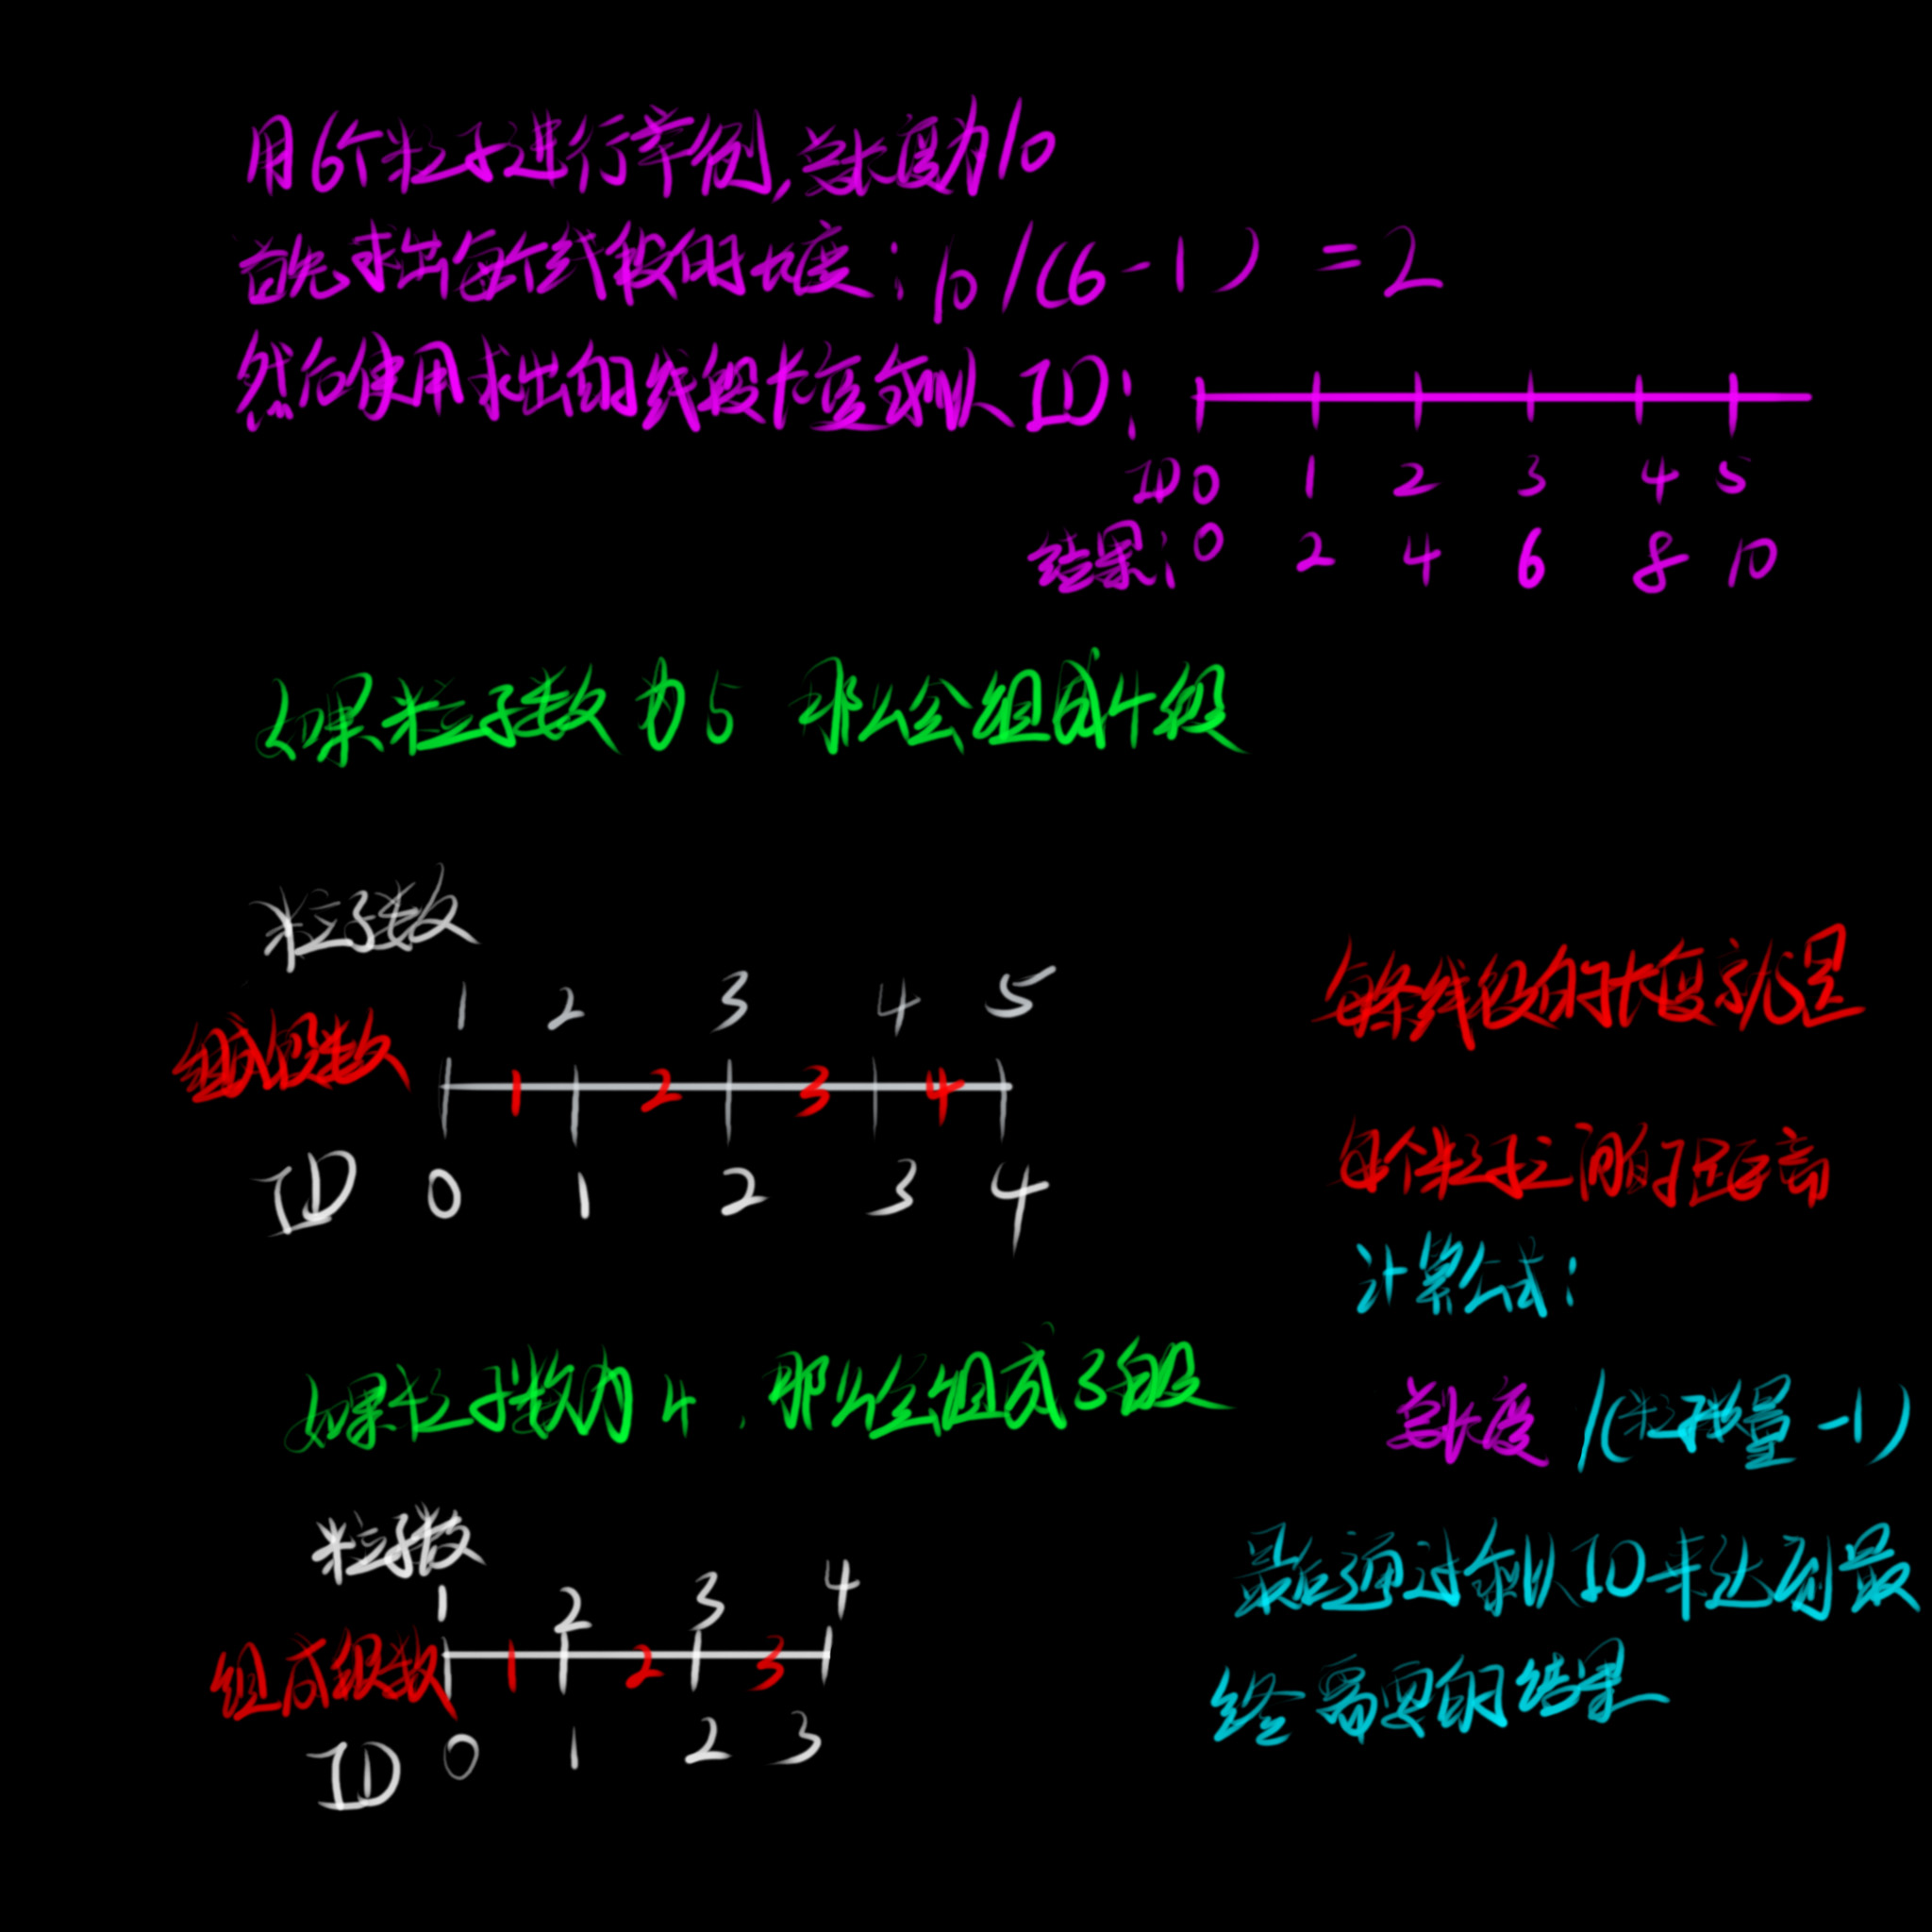 用6个粒子进行举例,总长度为10
首先求出每个线段的长度：10/(6-1)=2
然后使用求出的线段长度乘以ID:
ID 0 1 2 3 4 5
结果: 0 2 4 6 8 10
如果粒子数为5 那么会组成4段
粒子数
1 2 3 4 5
组成段数 1 2 3 4
ID 0 1 2 3 4
每条线段的长度就是
每个粒子之间的距离
计算公式:
总长度/(粒子数量-1)
最后通过乘以ID来达到最
终需要的结果
如果粒子数为4,那么会组成3段
粒子数
1 2 3 4
组成段数 1 2 3
ID 0 1 2 3